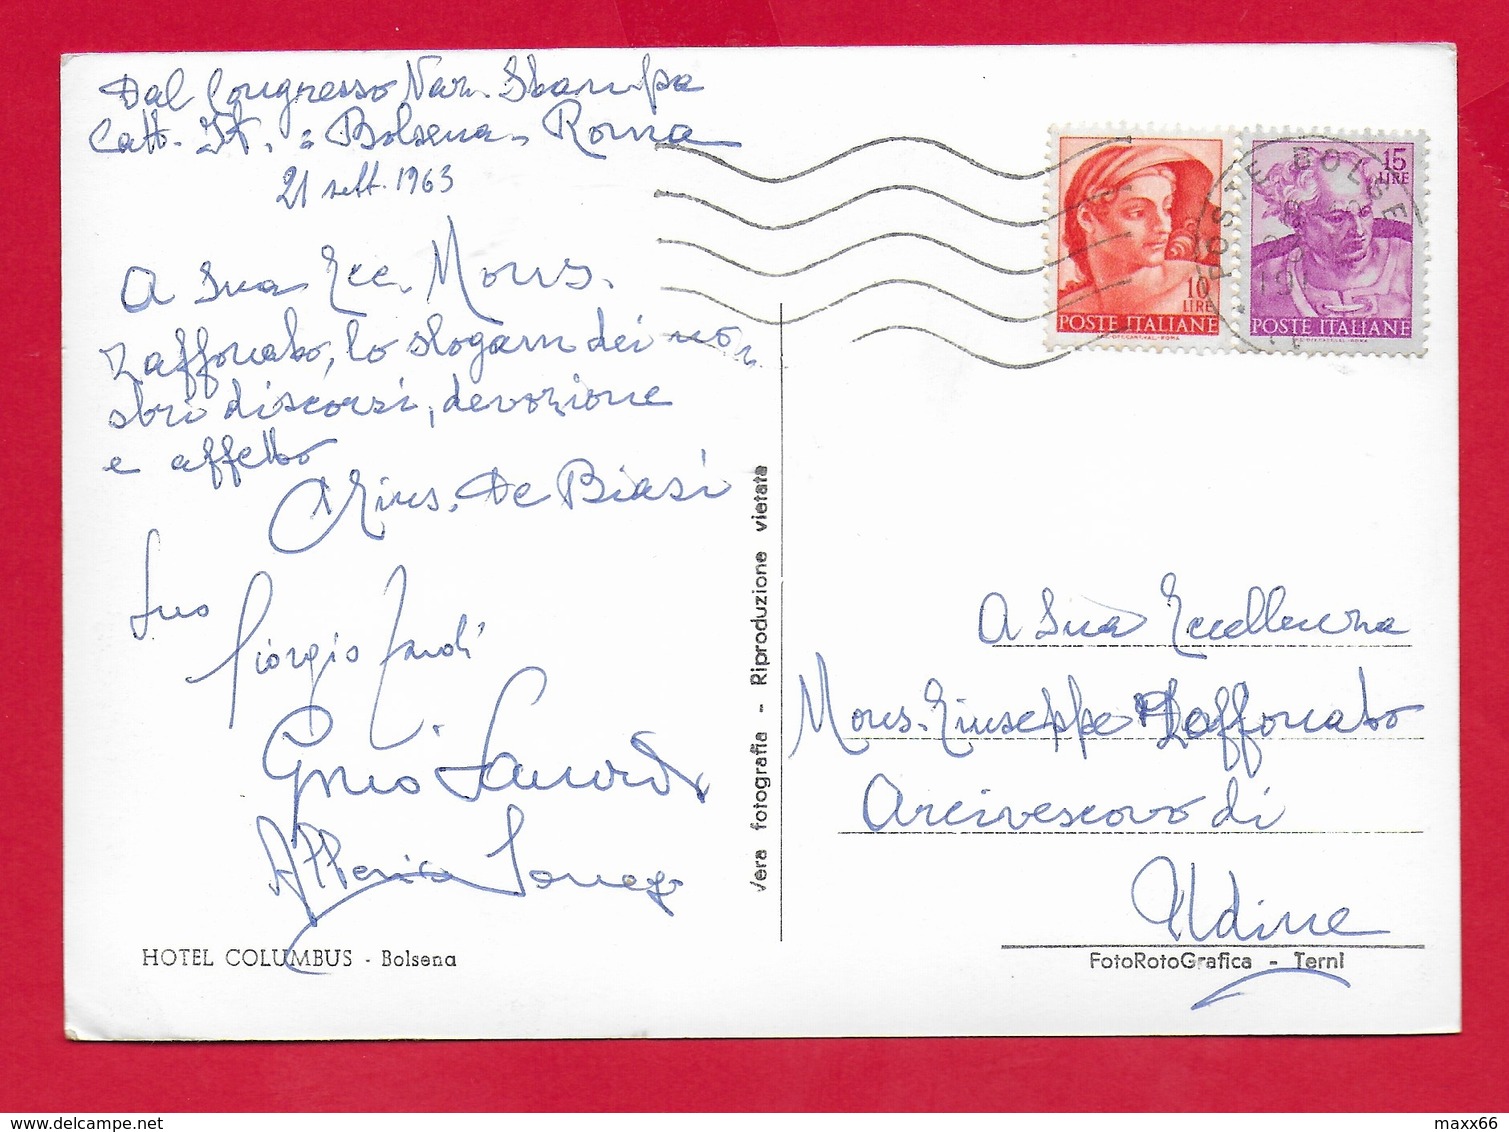 Dal Congresso Naz. Stampa
Catt. It. = Bolsena - Roma
21 sett. 1963
A Sua Ecc. Mons.
Zaffonato, lo slogam dei no-
stri discorsi, devozione
e affetto
Mins. De Biasi
Suo
Giorgio
HOTEL COLUMBUS - Bolsena
Vera fotografia - Riproduzione vietata
10
LIRE
POSTE ITALIANE
15
LIRE
POSTE ITALIANE
POSTE BOLSE
A Sua Eccellenza
Mons. Giuseppe Zaffonato
Arcivescovo di
Udine
FotoRotoGrafica - Terni
maxx66